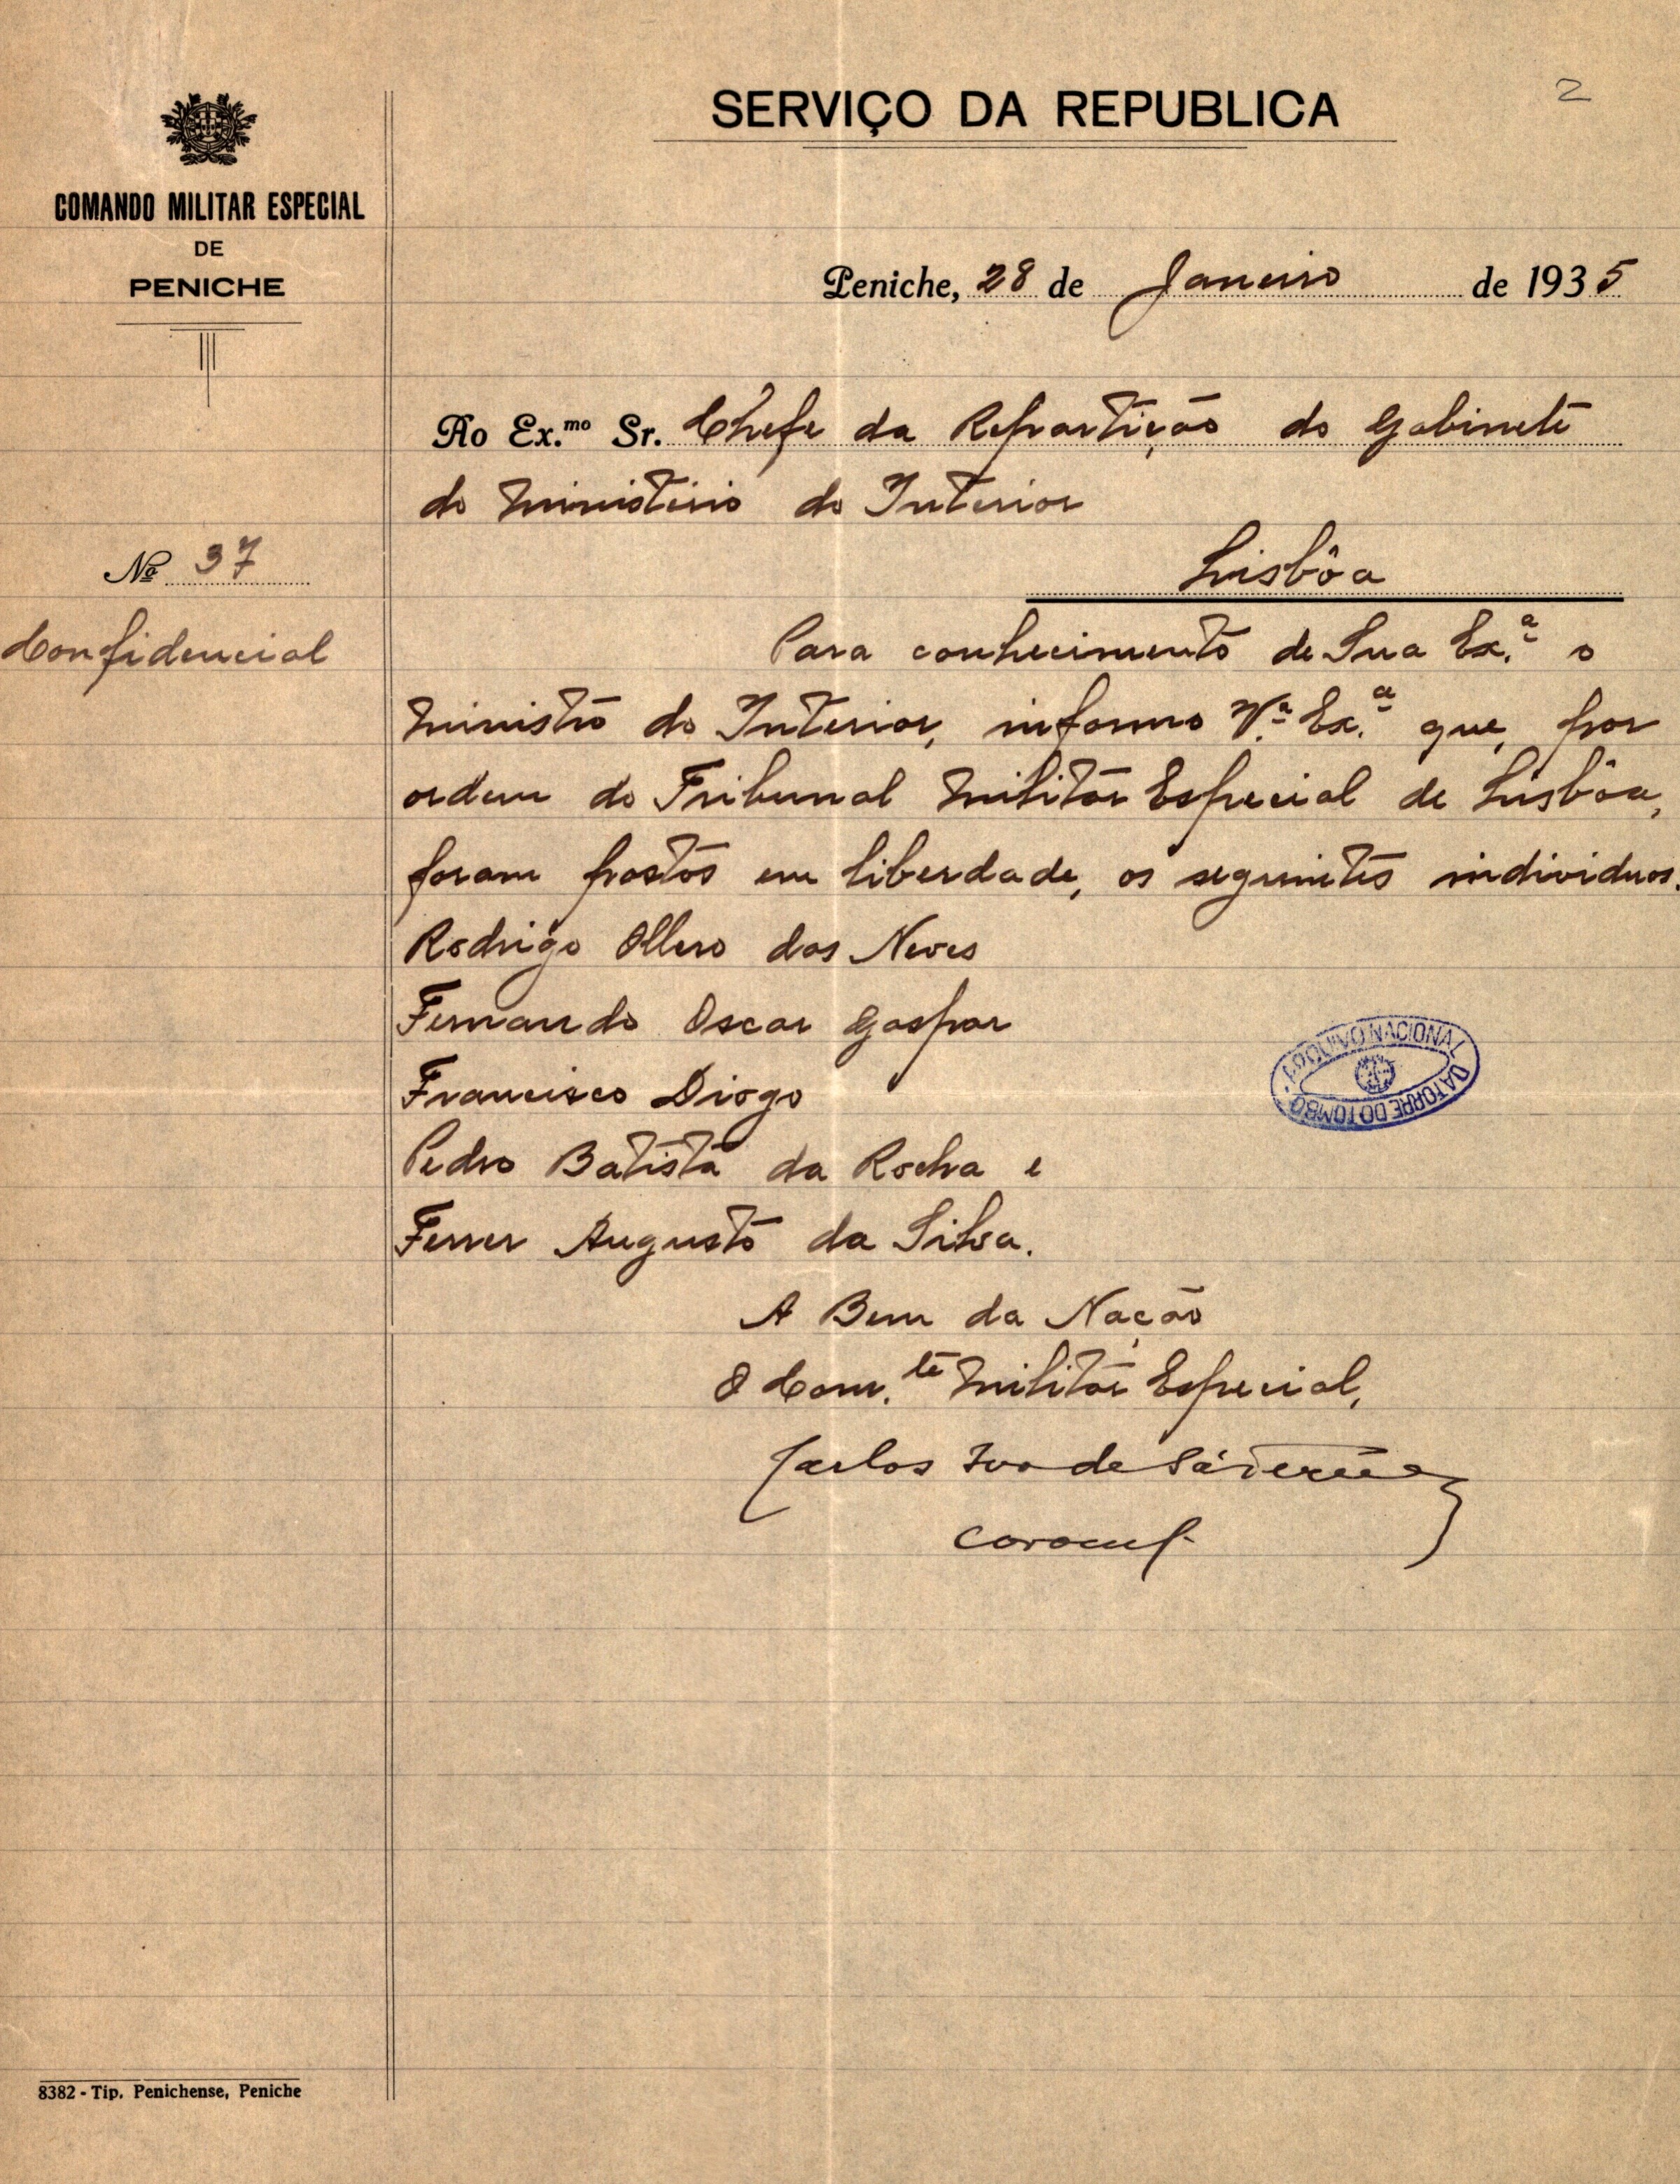 SERVIÇO DA REPUBLICA
2
COMANDO MILITAR ESPECIAL
DE
PENICHE
Peniche, 28 de Janeiro de 1935
Ao Ex.mo Sr. Chefe da Repartição do Gabinete
do Ministério do Interior
Lisbôa
Nº 37
Confidencial
Para conhecimento de Sua Ex.ª o
Ministro do Interior, informo V.ª Ex.ª que, por
ordem do Tribunal Militar Especial de Lisbôa,
foram postos em liberdade, os seguintes individuos.
Rodrigo Ollero das Neves
Fernando Oscar Gaspar
Francisco Diogo
Pedro Batista da Rocha e
Ferrer Augusto da Silva.
ARQUIVO NACIONAL DA TORRE DO TOMBO
A Bem da Nação
O Com.te Militar Especial,
Carlos Ivo de Sá
Coronel
8382 - Tip. Penichense, Peniche